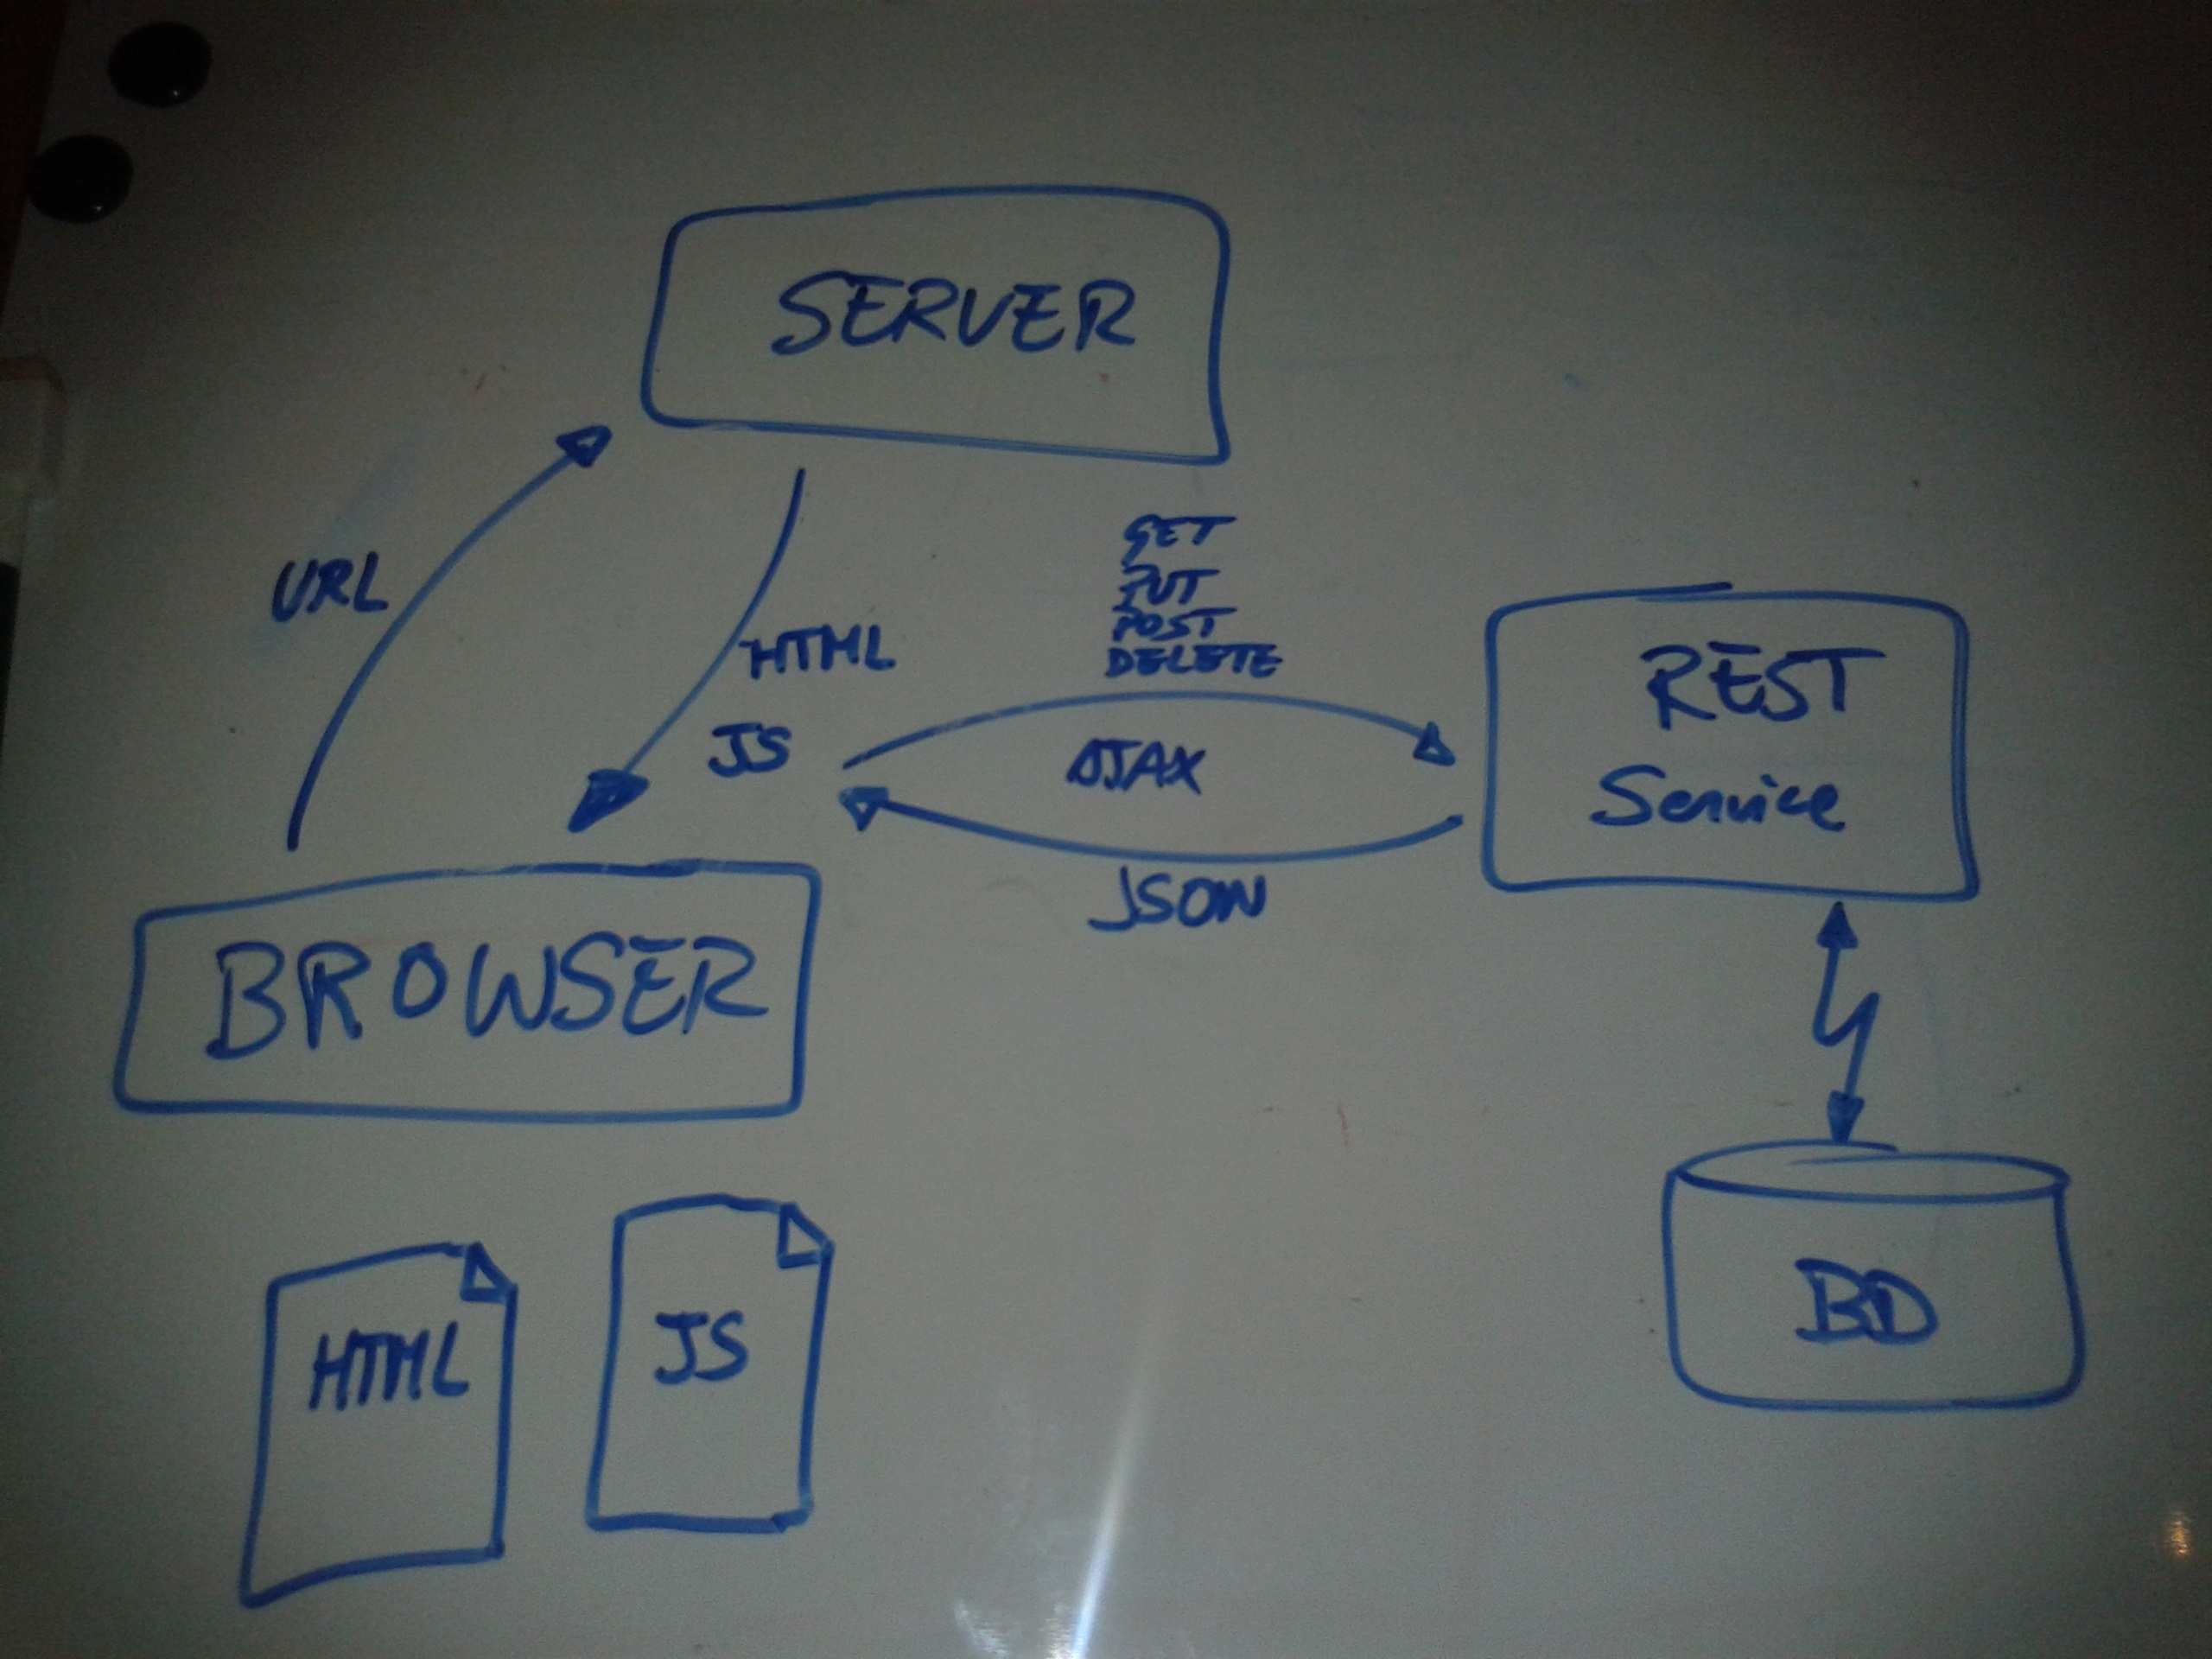 SERVER
URL
HTML
JS
GET
PUT
POST
DELETE
AJAX
JSON
REST
Service
BROWSER
HTML
JS
BD